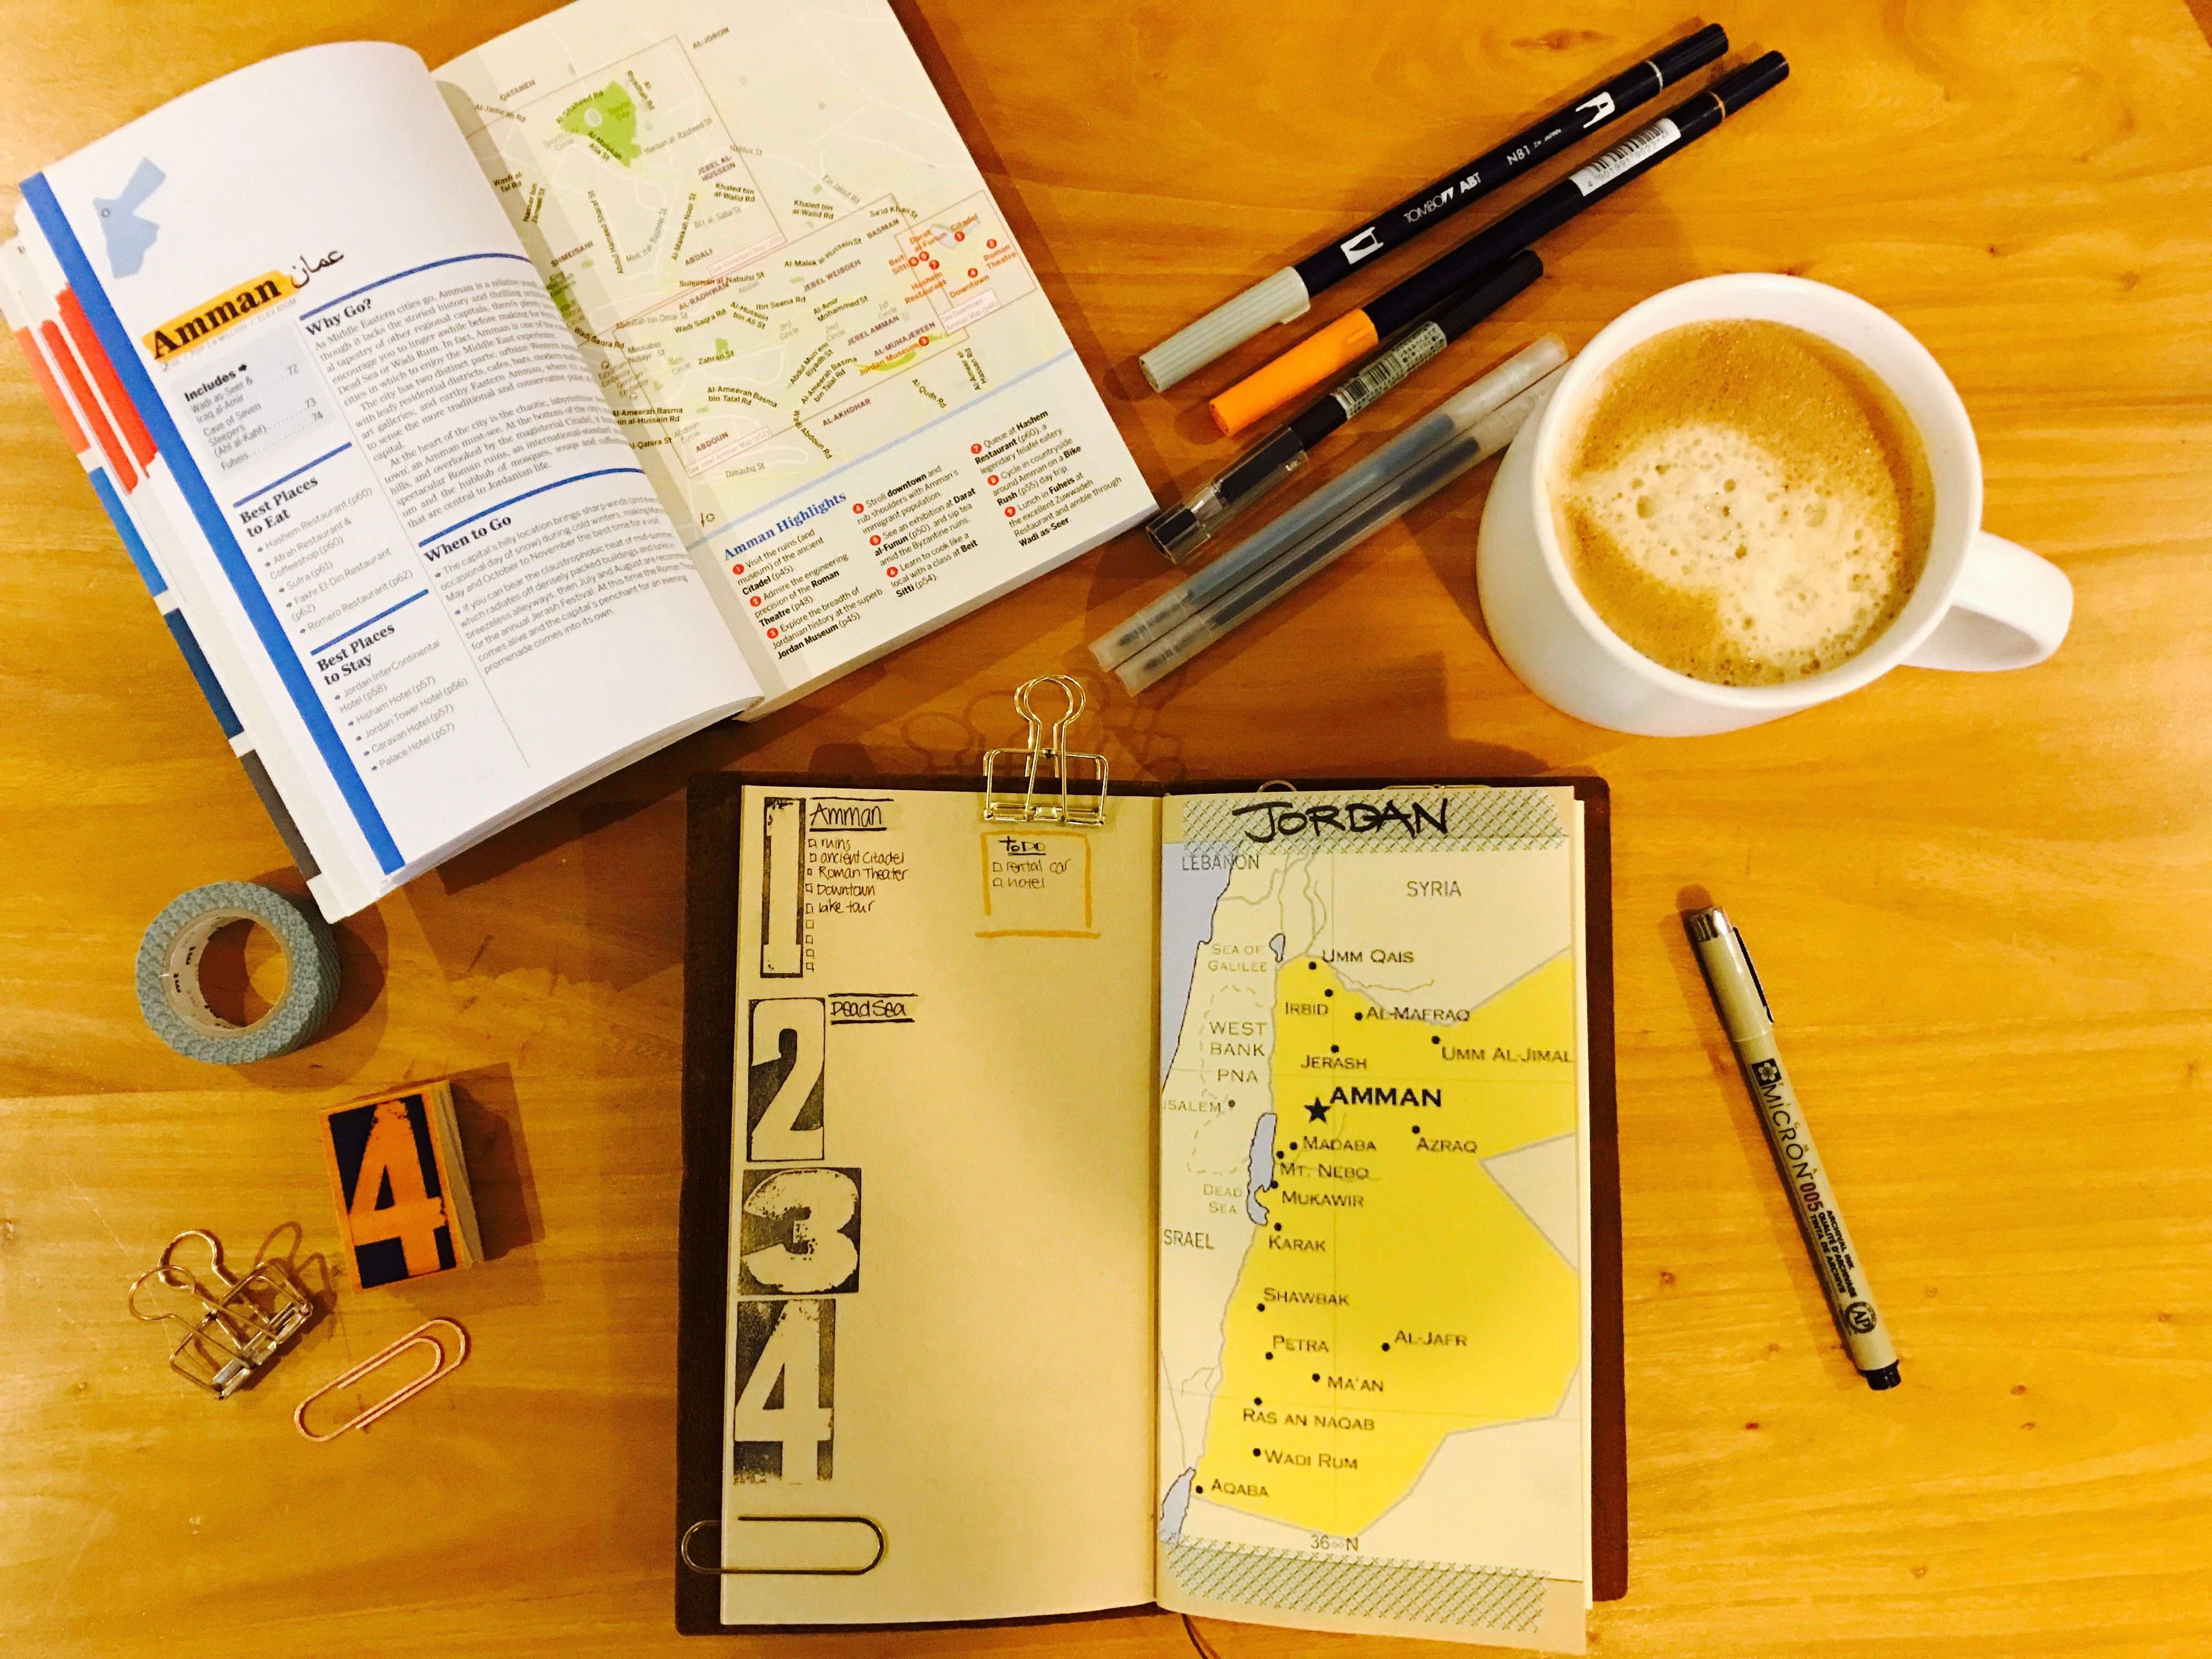 Amman عمان
POP 2.8 MILLION / ELEV 850M
Includes
Wadi as-Seer &
Iraq al-Amir 72
Cave of Seven
Sleepers
(Ahl al-Kahf) 73
Fuheis 74
Best Places
to Eat
Hashem Restaurant (p60)
Afrah Restaurant &
Coffeeshop (p60)
Sufra (p61)
Fakhr El-Din Restaurant
(p62)
Romero Restaurant (p62)
Best Places
to Stay
Jordan InterContinental
Hotel (p58)
Hisham Hotel (p57)
Jordan Tower Hotel (p56)
Caravan Hotel (p57)
Palace Hotel (p57)
Why Go?
As Middle Eastern cities go, Amman is a relative
though it lacks the storied history and thrilling
al tapestry of other regional capitals, there's
encourage you to linger awhile before making for
Dead Sea or Wadi Rum. In fact, Amman is one of the
cities in which to enjoy the Middle East experience.
The city has two distinct parts: urbane Western
with leafy residential districts, cafes, bars, modern
art galleries; and earthy Eastern Amman, where
to sense the more traditional and conservative
capital.
At the heart of the city is the chaotic, labyrinthine
town, an Amman must-see. At the bottom of the city's
hills, and overlooked by the magisterial Citadel,
spectacular Roman ruins, an international-standard
um and the hubbub of mosques, souqs and
that are central to Jordanian life.
When to Go
The capital's hilly location brings sharp winds (and even the
occasional day of snow) during cold winters, making
May and October to November the best time for a visit.
If you can bear the claustrophobic heat of mid-summer,
which radiates off densely packed buildings and
breezeless alleyways, then July and August are
for the annual Jerash Festival. At this time the Roman
comes alive and the capital's penchant for an evening
promenade comes into its own.
AL-JORON
QATANEH
Al-Jame'ah Rd
Al-Shaheed Rd
Al-Malekah
Alia St
Haroun al-Rasheed St
Nablus St
JEBEL AL-
HUSSEIN
Khaled bin
al-Walid Rd
Khaled bin
al-Walid Rd
Al-Malekah Noor St
SHMEISANI
ABDALI
Suleiman al-Nabulsi St
Al-Malek al-Hussein St
JEBEL WEIBDEH
BASMAN
Sa'id Khair St
Darat
al-Funun
Citadel
Beit
Sitti
Hashem
Restaurant
Roman
Theatre
Downtown
See Downtown
Amman Map (p46)
AL-RADHWAN
Al-Hussein
bin Ali St
Ibn Seena Rd
Al-Amir
Mohammed St
Wadi Saqra Rd
Zahran St
3rd
Circle
2nd
Circle
1st
Circle
JEBEL AMMAN
AL-MUHAJEREEN
Jordan Museum
Al-Ameerah Basma
bin Talal Rd
Al-Ameerah Basma
bin Talal Rd
Al-Quds Rd
AL-AKHDHAR
Al-Qahira St
ABDOUN
Dimashq St
Amman Highlights
1 Visit the ruins (and
museum) of the ancient
Citadel (p45).
2 Admire the engineering
precision of the Roman
Theatre (p48).
3 Explore the breadth of
Jordanian history at the superb
Jordan Museum (p45).
4 Stroll downtown and
rub shoulders with Amman's
immigrant population
5 See an exhibition at Darat
al-Funun (p50), and sip tea
amid the Byzantine ruins.
6 Learn to cook like a
local with a class at Beit
Sitti (p54).
7 Queue at Hashem
Restaurant (p60), a
legendary felafel eatery.
8 Cycle in countryside
around Amman on a Bike
Rush (p55) day trip.
9 Lunch in Fuheis at
the excellent Zuwwadeh
Restaurant and amble through
Wadi as-Seer
N81 IN JAPAN
TOMBOW ABT
mt
mt
4
1
Amman
ruins
ancient Citadel
Roman Theater
Downtown
take tour
to Do
rental car
hotel
2
Dead Sea
3
4
JORDAN
LEBANON
SYRIA
SEA OF
GALILEE
UMM QAIS
IRBID
AL-MAFRAQ
WEST
BANK
JERASH
UMM AL-JIMAL
PNA
AMMAN
USALEM
MADABA
AZRAQ
MT. NEBO
DEAD
SEA
MUKAWIR
SRAEL
KARAK
SHAWBAK
PETRA
AL-JAFR
MA'AN
RAS AN NAQAB
WADI RUM
AQABA
36 N
MICRON 005
ARCHIVAL INK
QUALITÉ D'ARCHIVAGE
TINTA DE ARCHIVE
AP